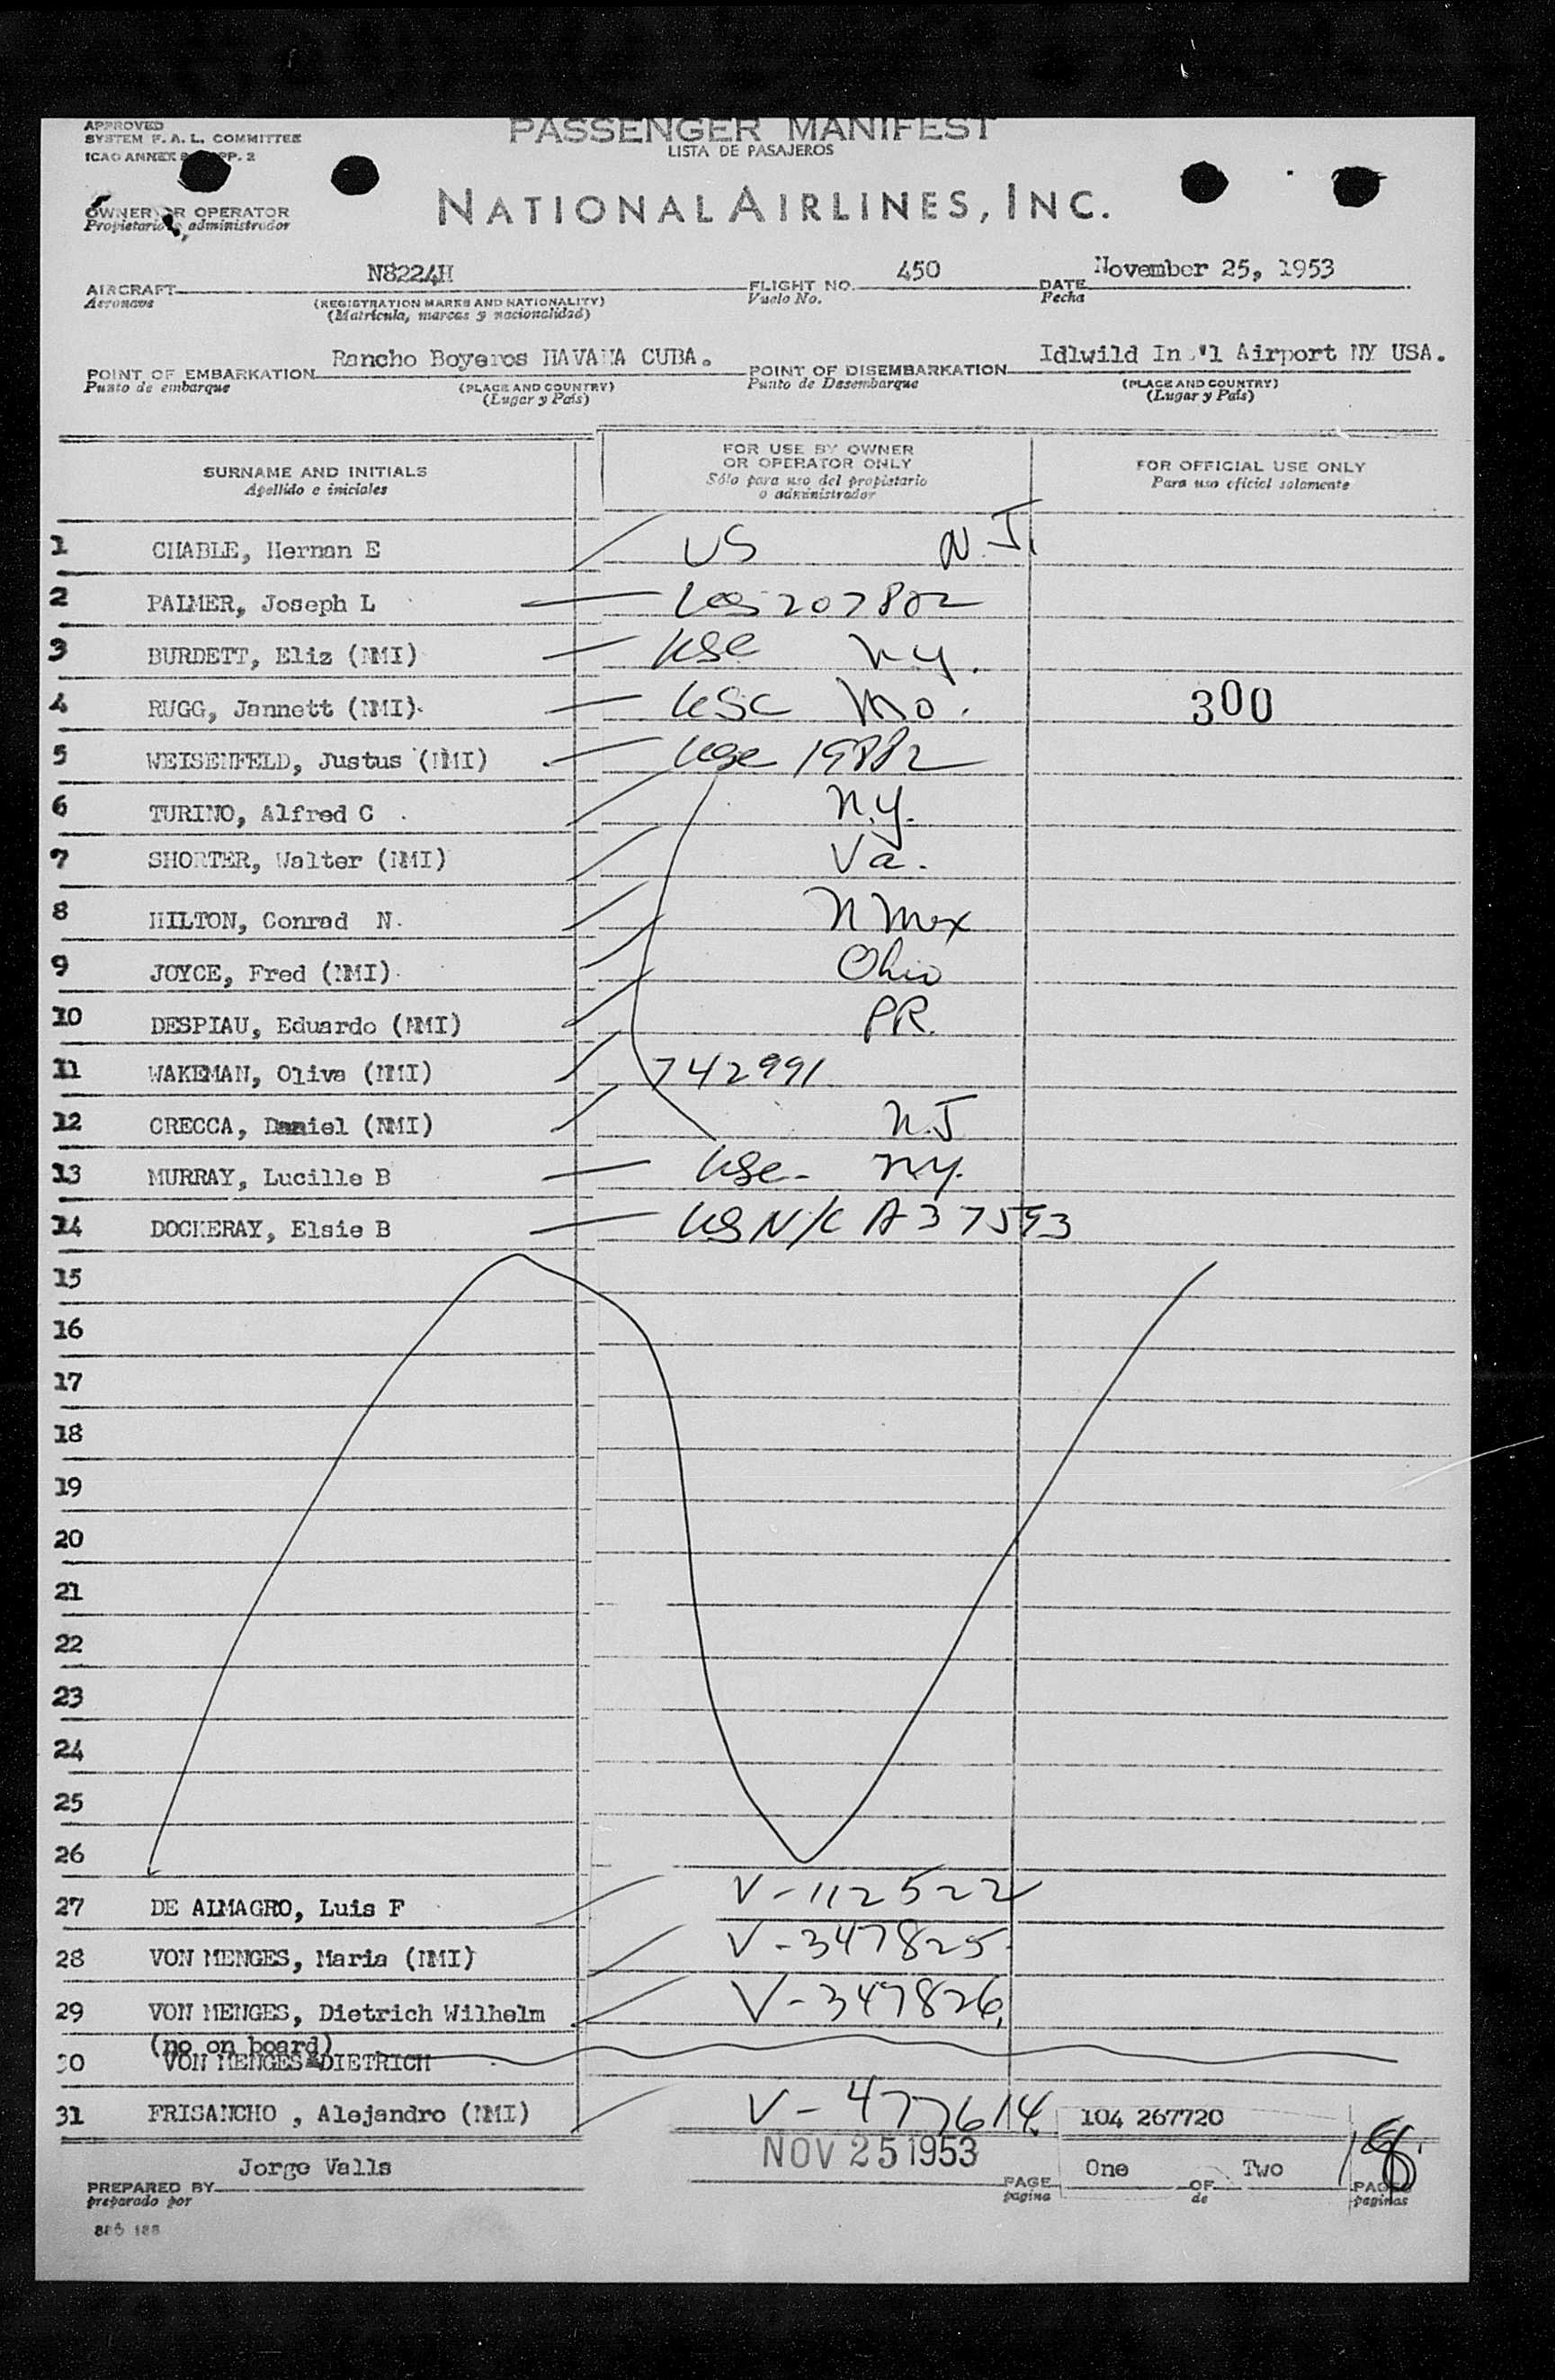 APPROVED
SYSTEM F. A. L. COMMITTEE
ICAO ANNEX PP. 2
PASSENGER MANIFEST
LISTA DE PASAJEROS
OWNER OR OPERATOR
Propietario administrador
NATIONAL AIRLINES, INC.
AIRCRAFT N8224H FLIGHT NO. 450 DATE November 25, 1953
Aeronave (REGISTRATION MARKS AND NATIONALITY) Vuelo No. Fecha
(Matrícula, marcas y nacionalidad)
POINT OF EMBARKATION Rancho Boyeros HAVANA CUBA. POINT OF DISEMBARKATION Idlwild In 'l Airport NY USA.
Punto de embarque (PLACE AND COUNTRY) Punto de Desembarque (PLACE AND COUNTRY)
(Lugar y País) (Lugar y País)
SURNAME AND INITIALS FOR USE BY OWNER OR OPERATOR ONLY FOR OFFICIAL USE ONLY
Apellido e iniciales Sólo para uso del propietario o administrador Para uso oficial solamente
1 CHABLE, Hernan E US N.J.
2 PALMER, Joseph L 207802
3 BURDETT, Eliz (NMI) USC N.Y.
4 RUGG, Jannett (NMI) USC Mo. 300
5 WEISENFELD, Justus (NMI) USC 19882
6 TURINO, Alfred C N.Y.
7 SHORTER, Walter (NMI) Va.
8 HILTON, Conrad N. N Mex
9 JOYCE, Fred (NMI) Ohio
10 DESPIAU, Eduardo (NMI) PR.
11 WAKEMAN, Olive (NMI) 742991
12 CRECCA, Daniel (NMI) N.J
13 MURRAY, Lucille B USC- NY.
14 DOCKERAY, Elsie B US N/C A37593
15
16
17
18
19
20
21
22
23
24
25
26
27 DE ALMAGRO, Luis F V-112522
28 VON MENGES, Maria (NMI) V-347825
29 VON MENGES, Dietrich Wilhelm V-347826
(no on board)
30 VON MENGES DIETRICH
31 FRISANCHO , Alejandro (NMI) V-477614
104 267720
NOV 25 1953
PREPARED BY Jorge Valls PAGE One OF Two PAGES
preparado por pagina de paginas